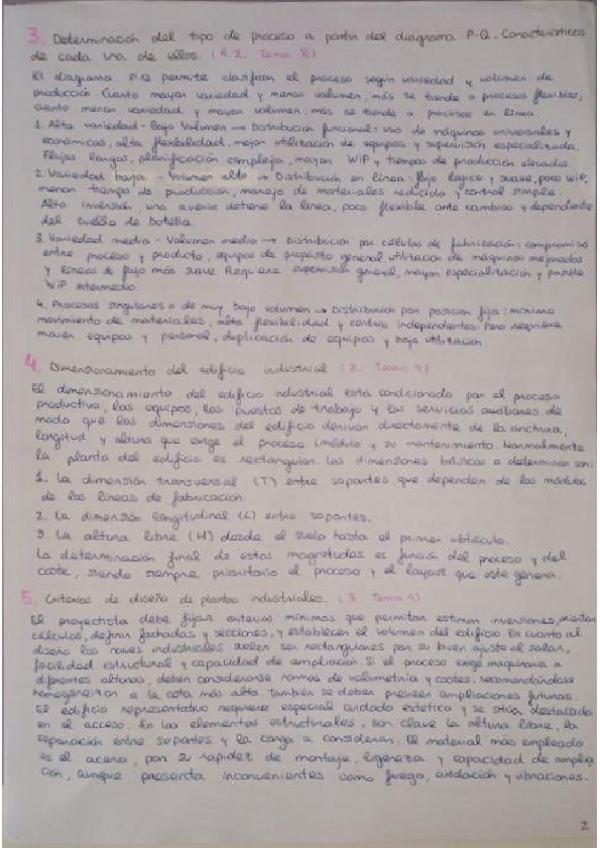 3. Determinación del tipo de proceso a partir del diagrama P-Q. Características
de cada uno de ellos. (A.2. Tema 8)
El diagrama P-Q permite clasificar el proceso según variedad y volumen de
producción. Cuanto mayor variedad y menor volumen, más se tiende a procesos flexibles,
cuanto menor variedad y mayor volumen, más se tiende a procesos en línea.
1. Alta variedad - Bajo Volumen → Distribución funcional: uso de máquinas universales y
económicas, alta flexibilidad, mejor utilización de equipos y supervisión especializada.
Flujos largos, planificación compleja, mayor WIP y tiempos de producción elevados.
2. Variedad baja - Volumen alto → Distribución en línea: flujo lógico y suave, poco WIP,
menor tiempo de producción, manejo de materiales reducido y control simple.
Alta inversión, una avería detiene la línea, poco flexible ante cambios y dependiente
del cuello de botella.
3. Variedad media - Volumen medio → Distribución por células de fabricación: compromiso
entre proceso y producto, equipos de propósito general, utilización de máquinas mejoradas
y líneas de flujo más suave. Requiere supervisión general, mayor especialización y posible
WIP intermedio
4. Procesos singulares o de muy bajo volumen → Distribución por posición fija: mínimo
movimiento de materiales, alta flexibilidad y centros independientes. Pero requiere
mover equipos y personal, duplicación de equipos y baja utilización
4. Dimensionamiento del edificio industrial (2. Tema 9)
El dimensionamiento del edificio industrial está condicionado por el proceso
productivo, los equipos, los puestos de trabajo y los servicios auxiliares, de
modo que las dimensiones del edificio derivan directamente de la anchura,
longitud y altura que exige el proceso (módulo y su mantenimiento. Normalmente
la planta del edificio es rectangular. Las dimensiones básicas a determinar son:
1. La dimensión transversal (T) entre soportes, que dependen de las medidas
de las líneas de fabricación.
2. La dimensión longitudinal (L) entre soportes.
3. La altura libre (H) desde el suelo hasta el primer obstáculo.
La determinación final de estas magnitudes es función del proceso y del
coste, siendo siempre prioritario el proceso y el layout que este genera.
5. Criterios de diseño de plantas industriales. (3. Tema 9)
El proyectista debe fijar criterios mínimos que permitan estimar inversiones, orientar
cálculos, definir fachadas y secciones, y establecer el volumen del edificio. En cuanto al
diseño las naves industriales suelen ser rectangulares por su buen ajuste al solar,
facilidad estructural y capacidad de ampliación. Si el proceso exige maquinaria a
diferentes alturas, deben considerarse normas de volumetría y costes, recomendándose
homogeneizar a la cota más alta. También se deben preveer ampliaciones futuras.
El edificio representativo requiere especial cuidado estético y se sitúa destacado
en el acceso. En los elementos estructurales, son clave la altura libre, la
separación entre soportes y la carga a considerar. El material más empleado
es el acero, por su rapidez de montaje, ligereza y capacidad de amplia
ción, aunque presenta inconvenientes como fuego, oxidación y vibraciones.
2